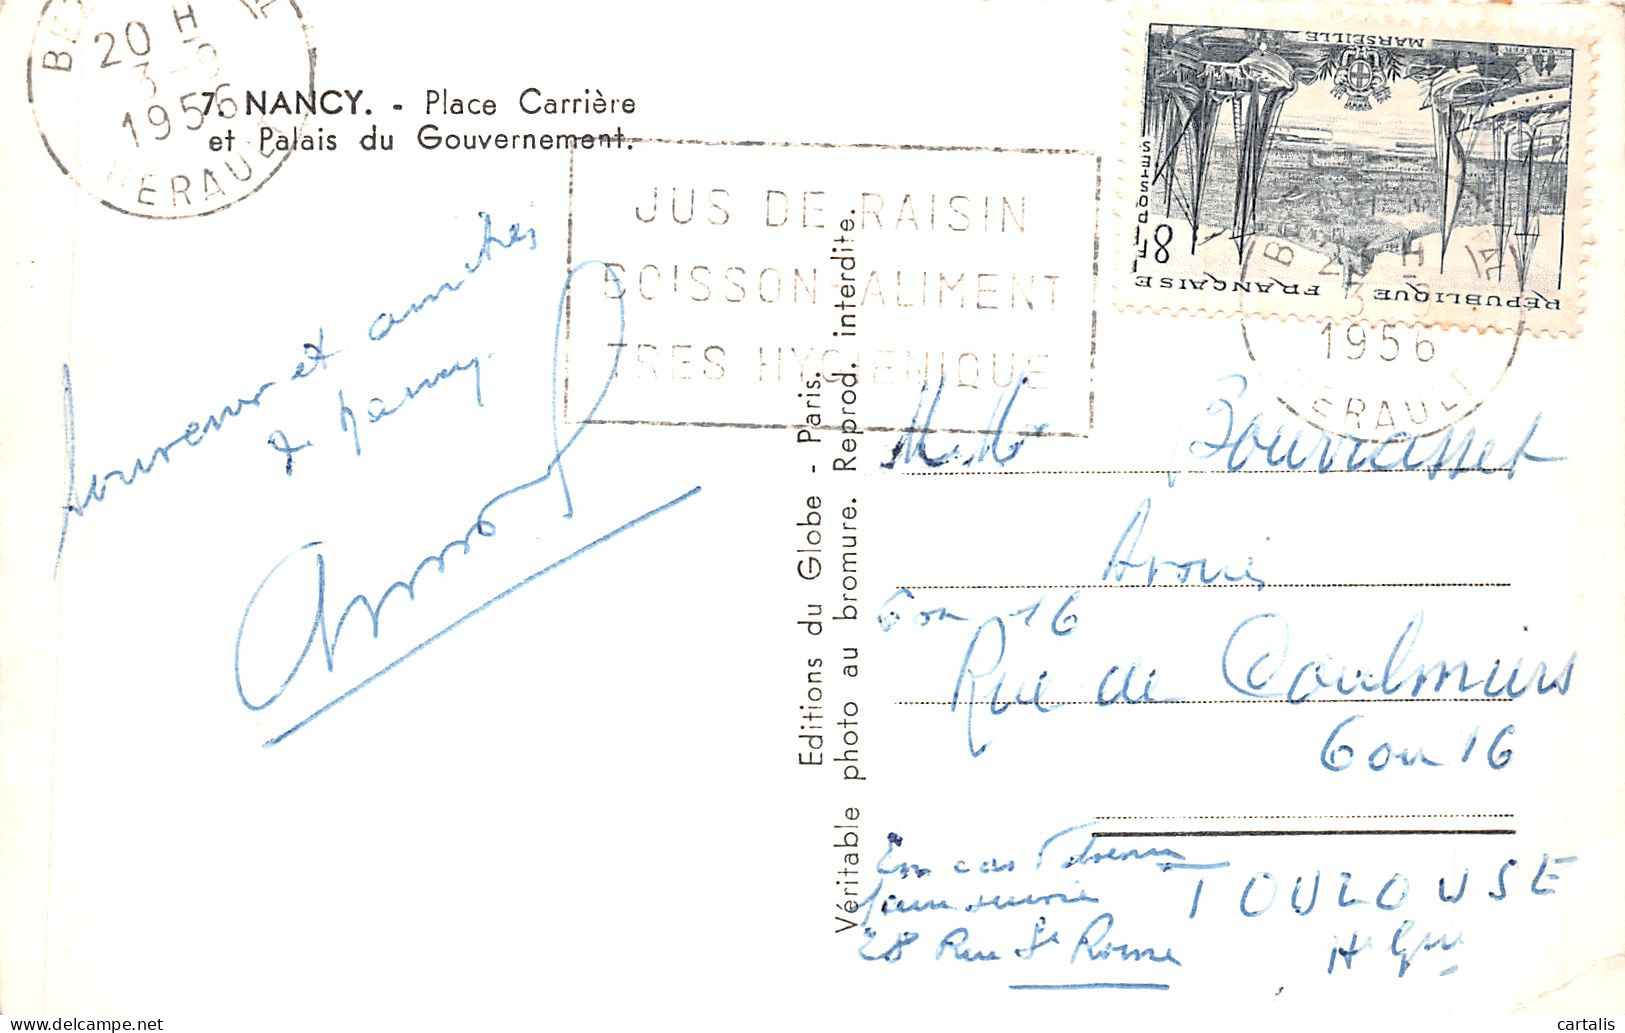 20 H
3-9
1956
HERAULT
7. NANCY. - Place Carrière
et Palais du Gouvernement.
JUS DE RAISIN
BOISSON-ALIMENT
TRES HYGIENIQUE
RÉPUBLIQUE FRANÇAISE
8F POSTES
MARSEILLE
20 H
3-9
1956
HERAULT
Souvenir et amitiés
de Nancy.
Editions du Globe - Paris.
Véritable photo au bromure. Reprod. interdite.
M. Me Bourrasset
Avoué
6 ou 16
Rue de Coulmiers
6 ou 16
TOULOUSE
Hte Gne
En cas
faire suivre
28 Rue Ste Rome
cartalis
www.delcampe.net